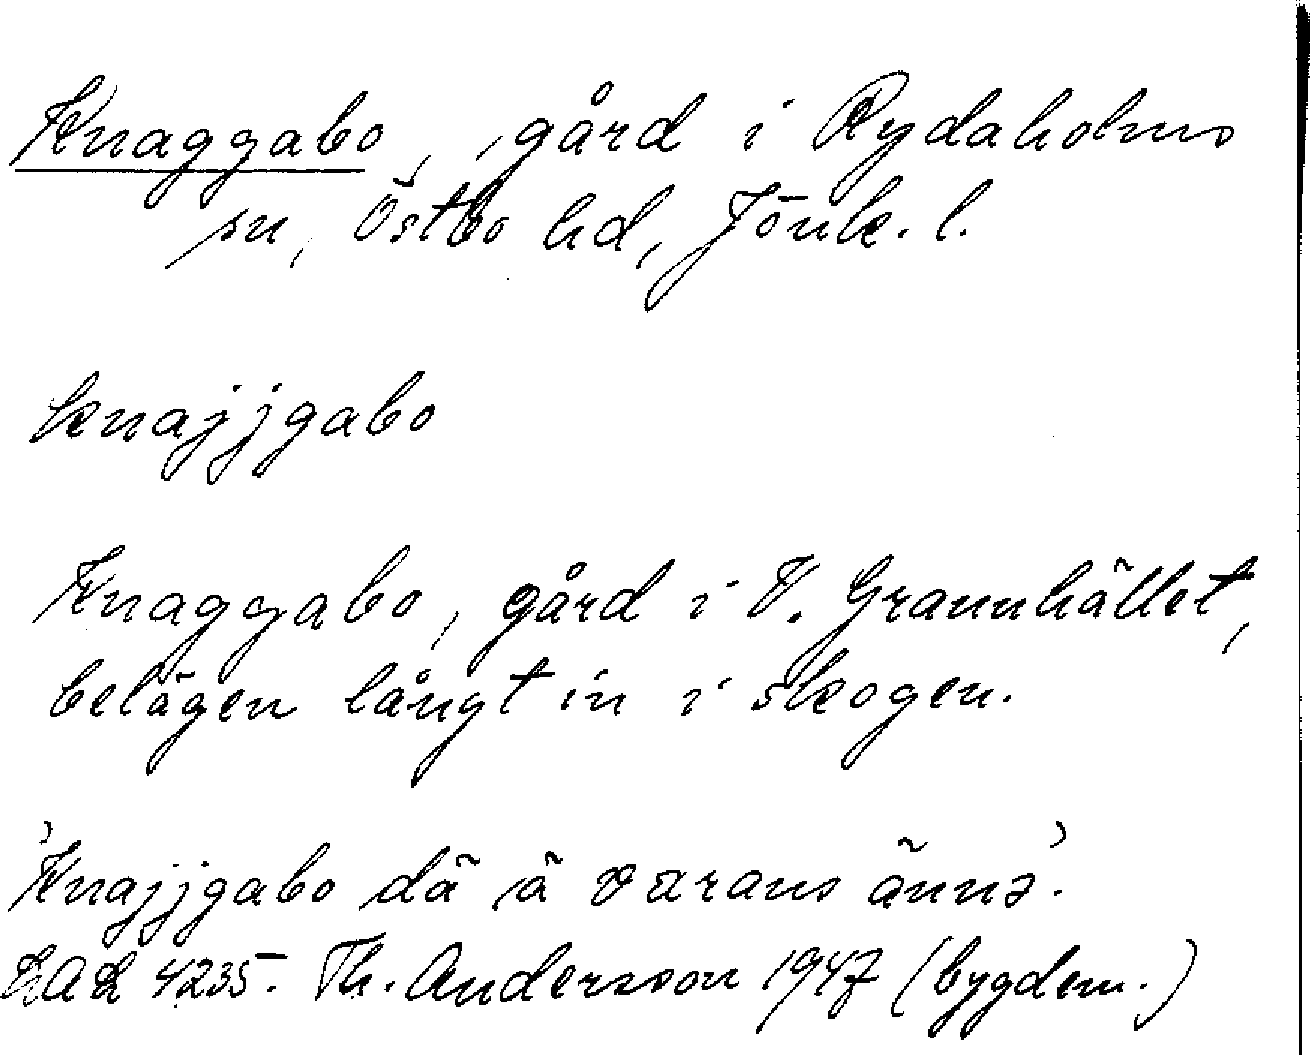 Knaggabo, gård i Rydaholms
sn, Östbo hd, Jönk. l.
knajjgabo
Knaggabo, gård i V. Grannhället,
belägen långt in i skogen.
'Knajjgabo dä ä varans ännə'.
LAL 4235. Th. Andersson 1947 (bygdem.)